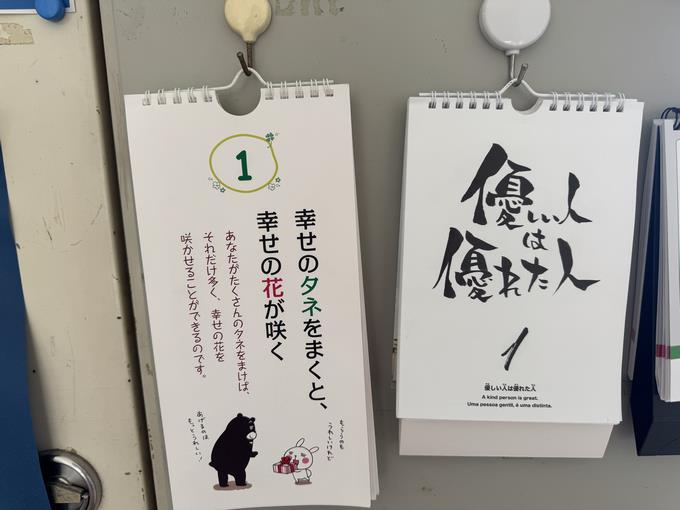 1
幸せのタネをまくと、
幸せの花が咲く
あなたがたくさんのタネをまけば、
それだけ多く、幸せの花を
咲かせることができるのです。
もらうのも
うれしいけれど
あげるのは
もっとうれしい！
優しい人
は
優れた人
1
優しい人は優れた人
A kind person is great.
Uma pessoa gentil, é uma distinta.